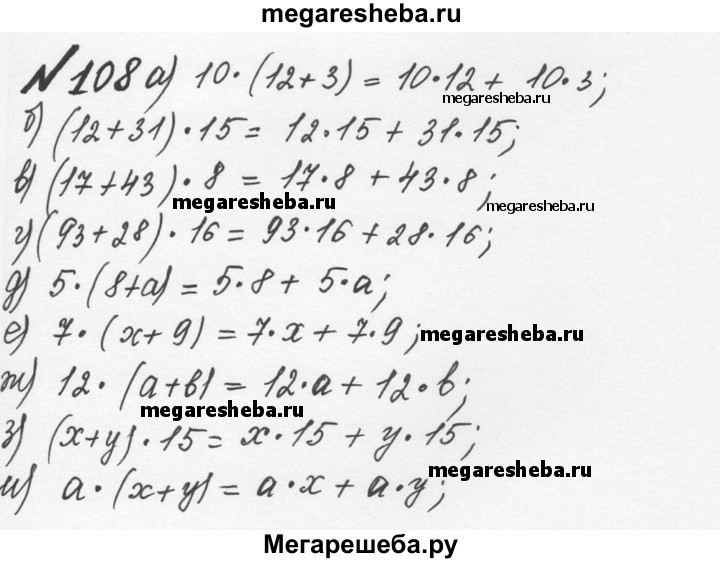 megaresheba.ru
№108 а) 10·(12+3) = 10·12 + 10·3;
megaresheba.ru
б) (12+31)·15 = 12·15 + 31·15;
в) (17+43)·8 = 17·8 + 43·8;
megaresheba.ru
megaresheba.ru
г) (93+28)·16 = 93·16 + 28·16;
д) 5·(8+а) = 5·8 + 5·а;
е) 7·(х+9) = 7·х + 7·9;
megaresheba.ru
ж) 12·(а+в) = 12·а + 12·в;
megaresheba.ru
з) (х+у)·15 = х·15 + у·15;
megaresheba.ru
и) а·(х+у) = а·х + а·у;
Мегарешеба.ру